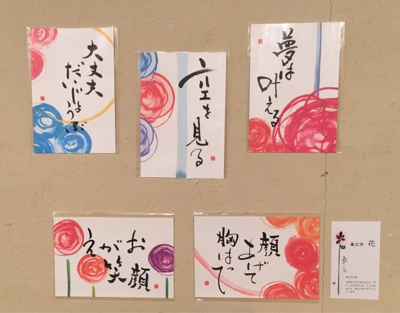 大丈夫
だいじょうぶ
空を
見る
夢は
叶える
お顔
が笑
え
顔
あげて
胸はって
花